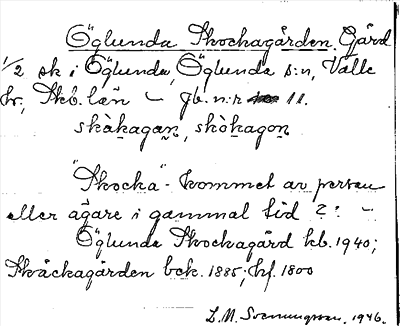 Öglunda Skockagården. Gård
1/2 sk i Öglunda, Öglunda s:n, Valle
hr, Skb. län – jb. n:r 11.
skàkagaṉ, skòkagoṉ
"Skocka" - kommet av person
eller ägare i gammal tid ? : –
Öglunda Skockagård kb. 1940;
Skåckagården bek. 1885; hf. 1800
L. M. Svenungsson. 1946.